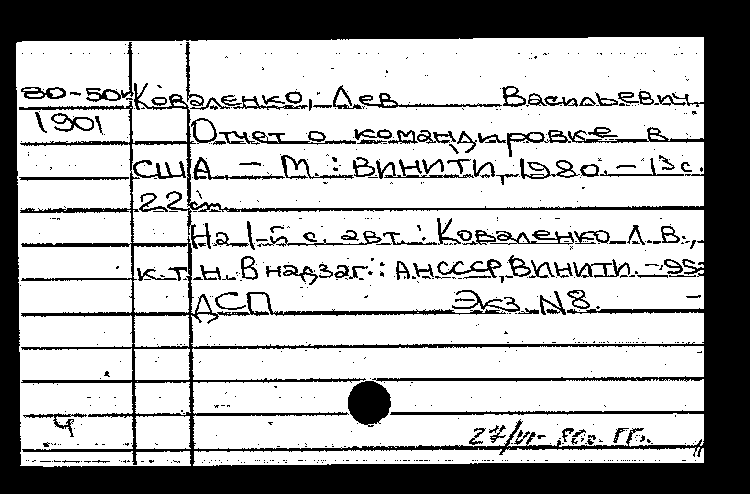 80-50к Коваленко, Лев Васильевич.
1901 Отчет о командировке в
США. – М.: ВИНИТИ, 1980. – 13 с.
22 см.
На 1-й с. авт.: Коваленко Л.В.,
к.т.н. В надзаг.: АН СССР, ВИНИТИ. –
ДСП Экз. N8. –
Ч
27/VI- 80г. ГГ.